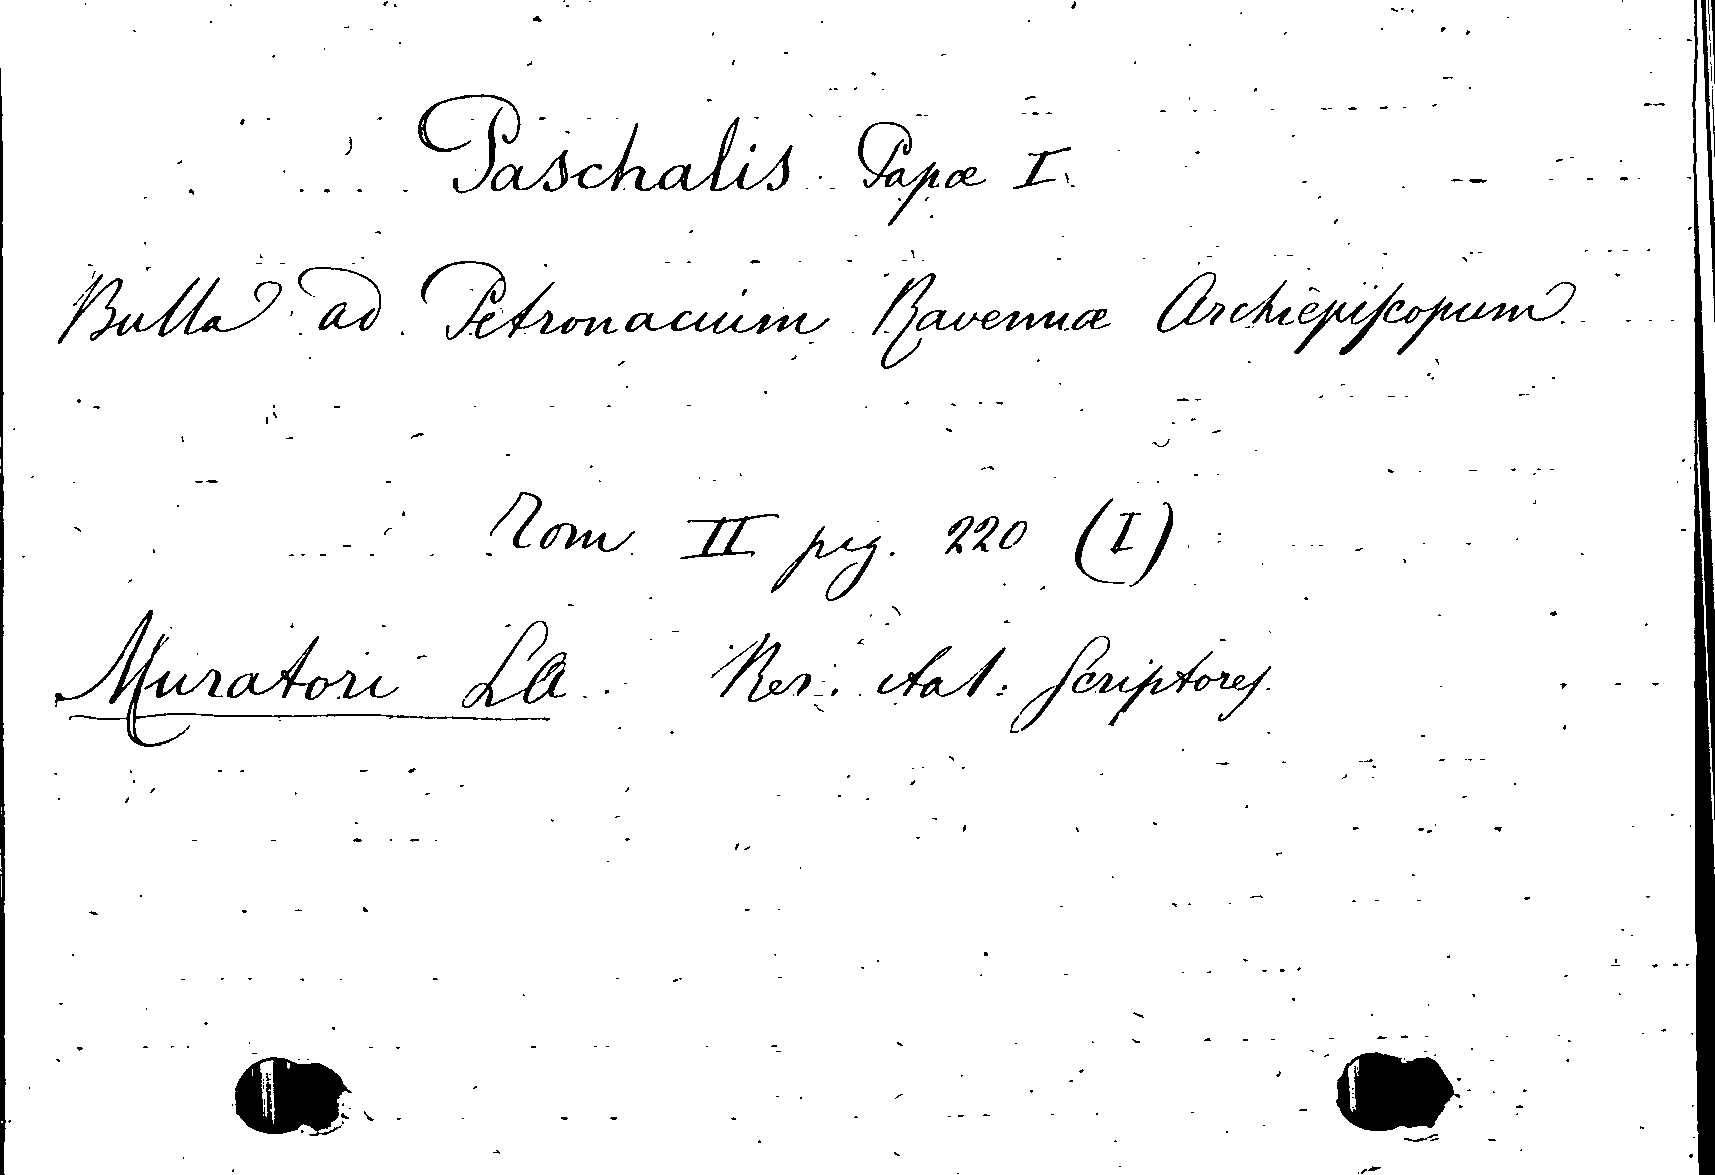 Paschalis Papæ I.
Bulla ad Petronacium Ravennæ Archiepiscopum
Tom II pag. 220 (I)
Muratori LA. Rer. Ital. Scriptores.